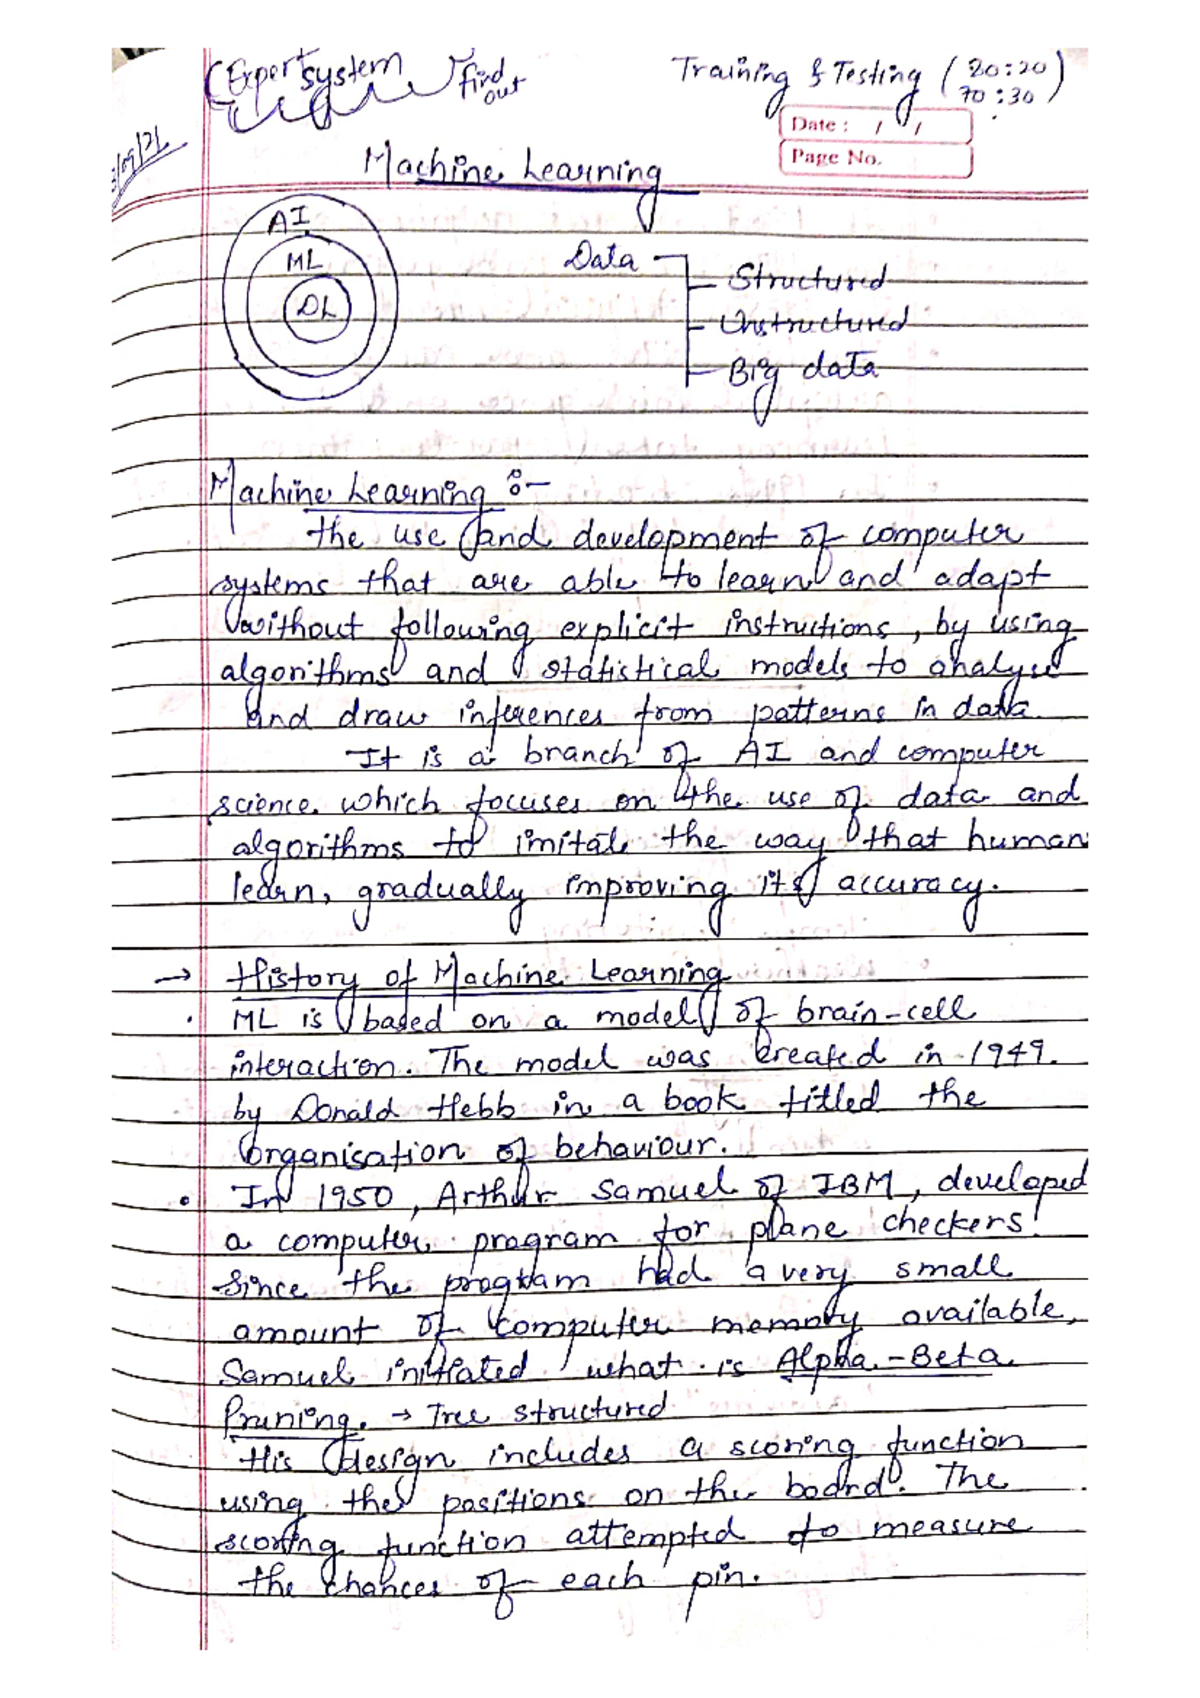 (Expert system find out
Training & Testing (80:20 70:30)
Date : / /
Page No.
Machine Learning
AI
ML
DL
Data
Structured
Unstructured
Big data
Machine Learning :-
the use and development of computer
systems that are able to learn and adapt
without following explicit instructions, by using
algorithms and statistical models to analyse
and draw inferences from patterns in data.
It is a branch of AI and computer
science which focuses on the use of data and
algorithms to imitate the way that human
learn, gradually improving its accuracy.
→ History of Machine Learning
. ML is based on a model of brain-cell
interaction. The model was created in 1949.
by Donald Hebb in a book titled the
organisation of behaviour.
• In 1950, Arthur Samuel of IBM, developed
a computer program for plane checkers.
Since the program had a very small
amount of computer memory available,
Samuel initiated what is Alpha-Beta
Pruning. → Tree structured
His design includes a scoring function
using the positions on the board. The
scoring function attempted to measure
the chances of each pin.